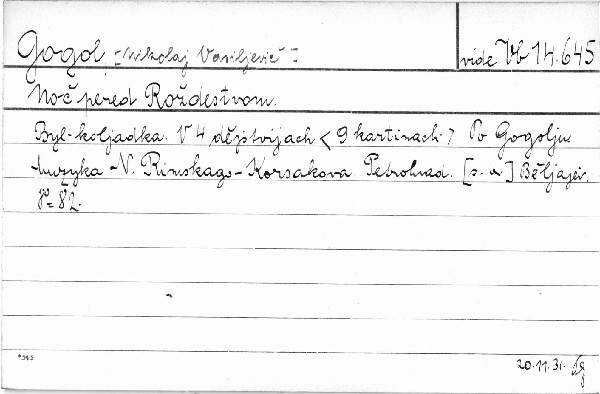 Gogol [Nikolaj Vasiljevič] vide Vb 14.645
Noč pered Roždestvom.
Byl-koljadka. V 4 dějstvijach < 9 kartinach > Po Gogolju
Muzyka N. Rimskago-Korsakova. Petrohrad. [s. a.] Běljajev.
8° 82.
20.11.31.